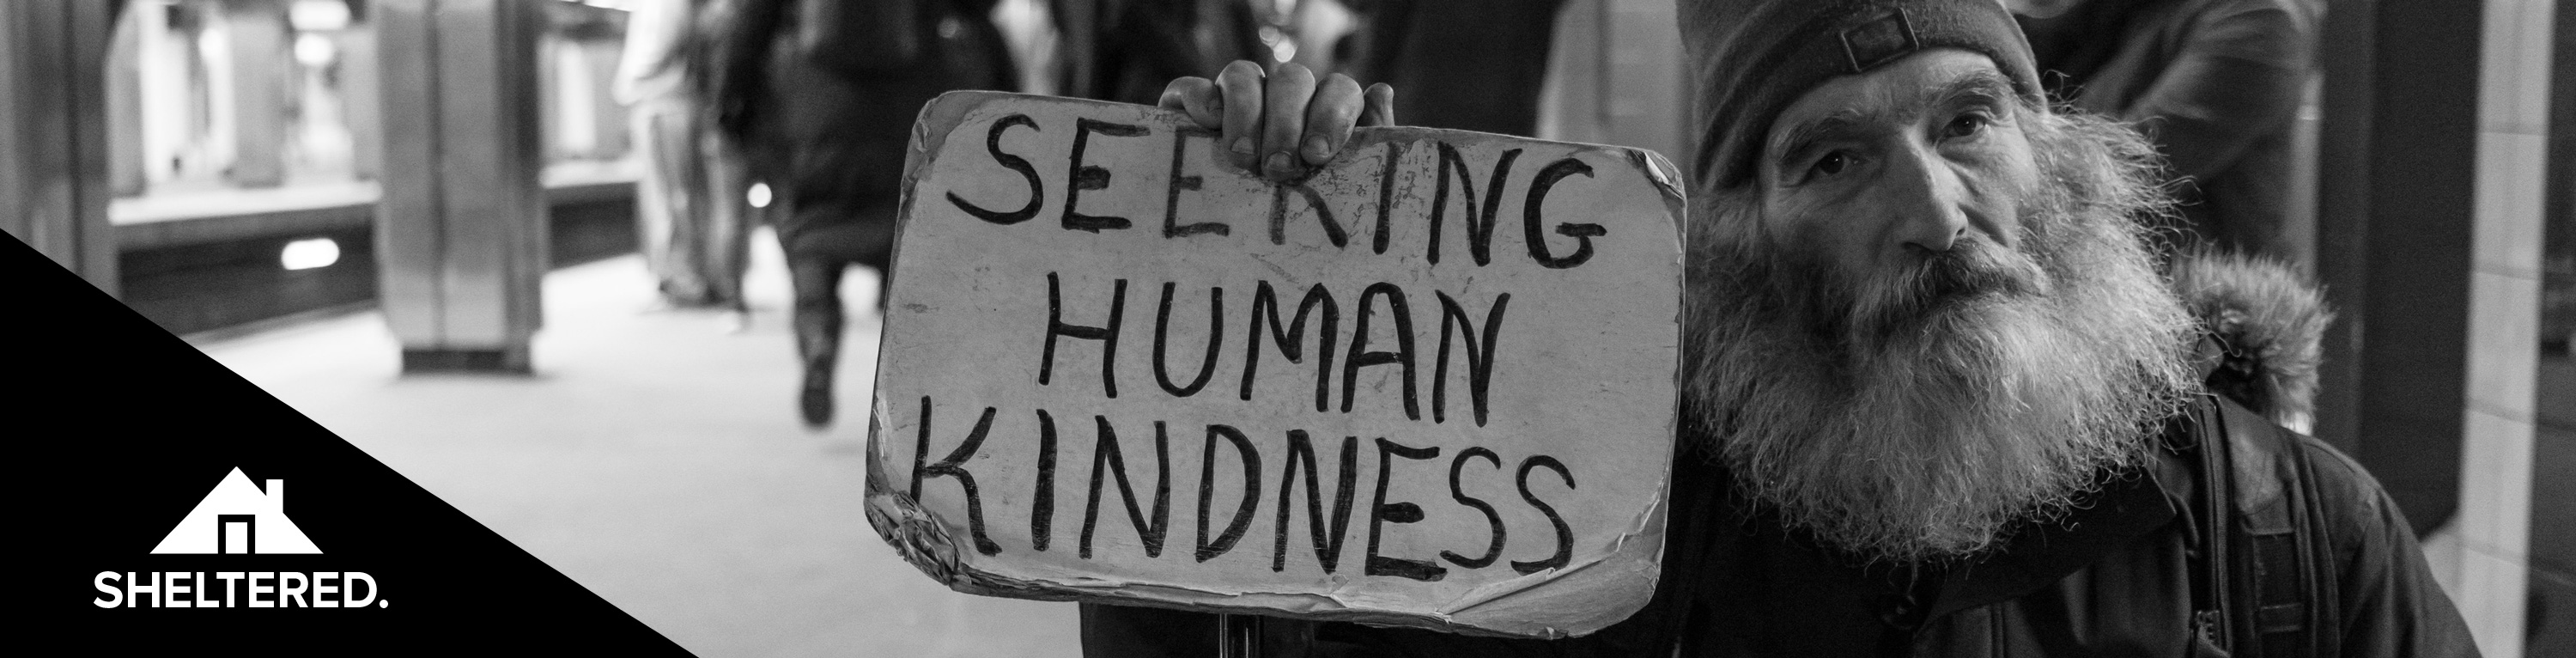 SEEKING
HUMAN
KINDNESS
SHELTERED.